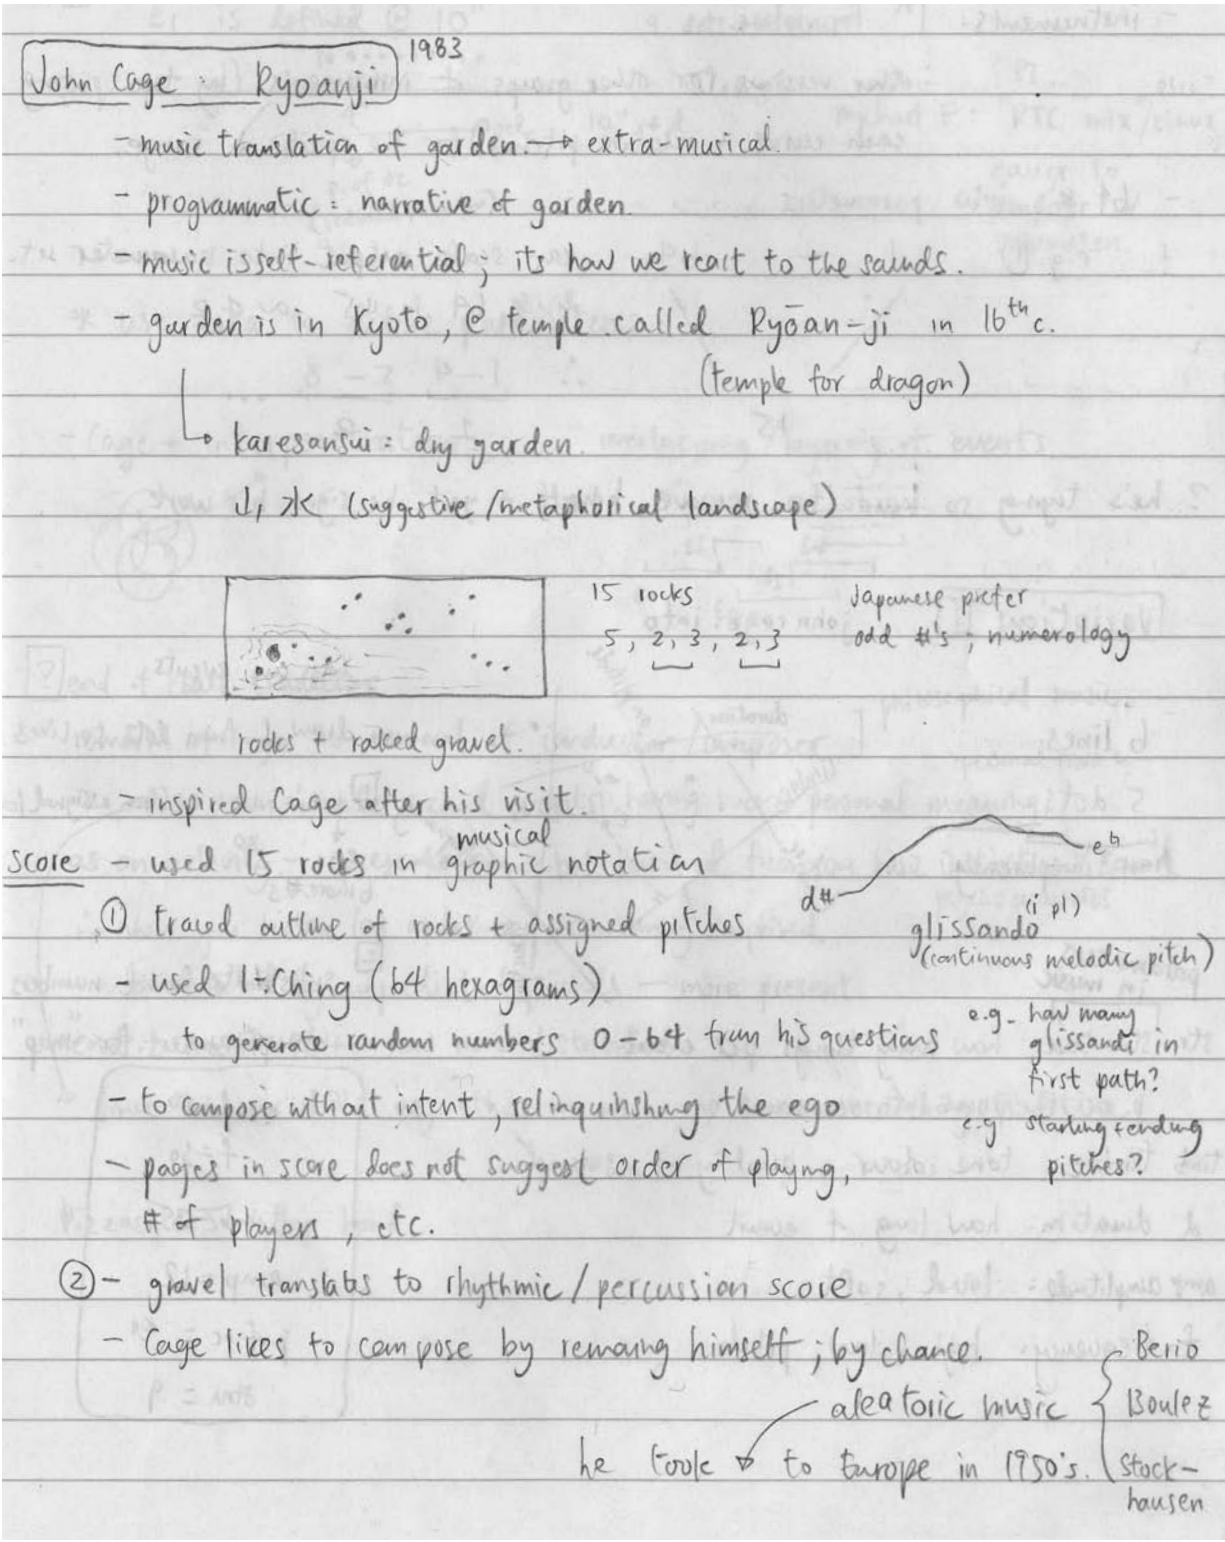 John Cage : Ryoanji 1983
- music translation of garden. → extra-musical.
- programmatic : narrative of garden.
- music is self-referential ; its how we react to the sounds.
- garden is in Kyoto, @ temple called Ryōan-ji in 16th c.
(temple for dragon)
↳ karesansui : dry garden.
山水 (suggestive/metaphorical landscape)
15 rocks
5, 2, 3, 2, 3
Japanese prefer
odd #'s ; numerology
rocks + raked gravel.
- inspired Cage after his visit.
score - used 15 rocks in musical graphic notation
① traced outline of rocks + assigned pitches
d# e♮
glissando (i pl)
(continuous melodic pitch)
- used I-Ching (64 hexagrams)
to generate random numbers 0-64 from his questions
e.g. how many
glissandi in
first path?
- to compose without intent, relinquinshing the ego
e.g starting + ending
pitches?
- pages in score does not suggest order of playing,
# of players, etc.
② - gravel translates to rhythmic/percussion score
- Cage likes to compose by removing himself ; by chance.
aleatoric music { Berio
Boulez
Stock-
hausen
he took to Europe in 1950's.